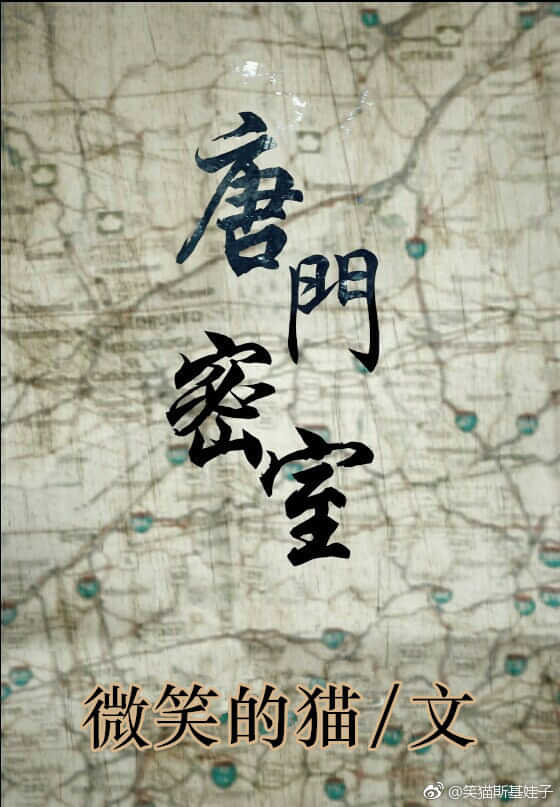 唐門
密室
微笑的猫/文
@笑猫斯基娃子